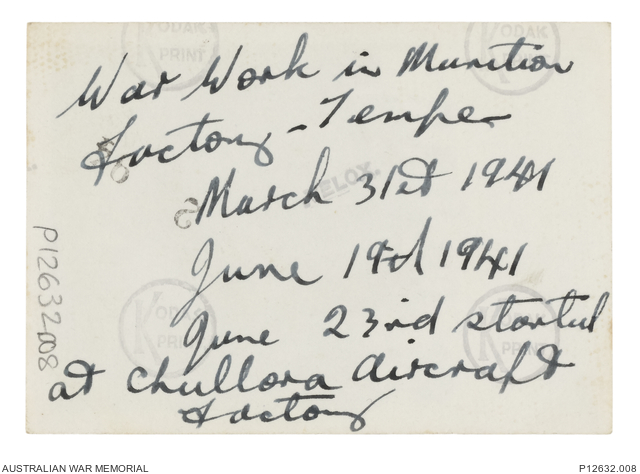 War Work in Munition
Factory - Tempe
March 31st 1941
June 19th 1941
June 23rd started
at Chullora Aircraft
Factory
P12632.008
KODAK
PRINT
KODAK
PRINT
KODAK
PRINT
VELOX.
AUSTRALIAN WAR MEMORIAL
P12632.008